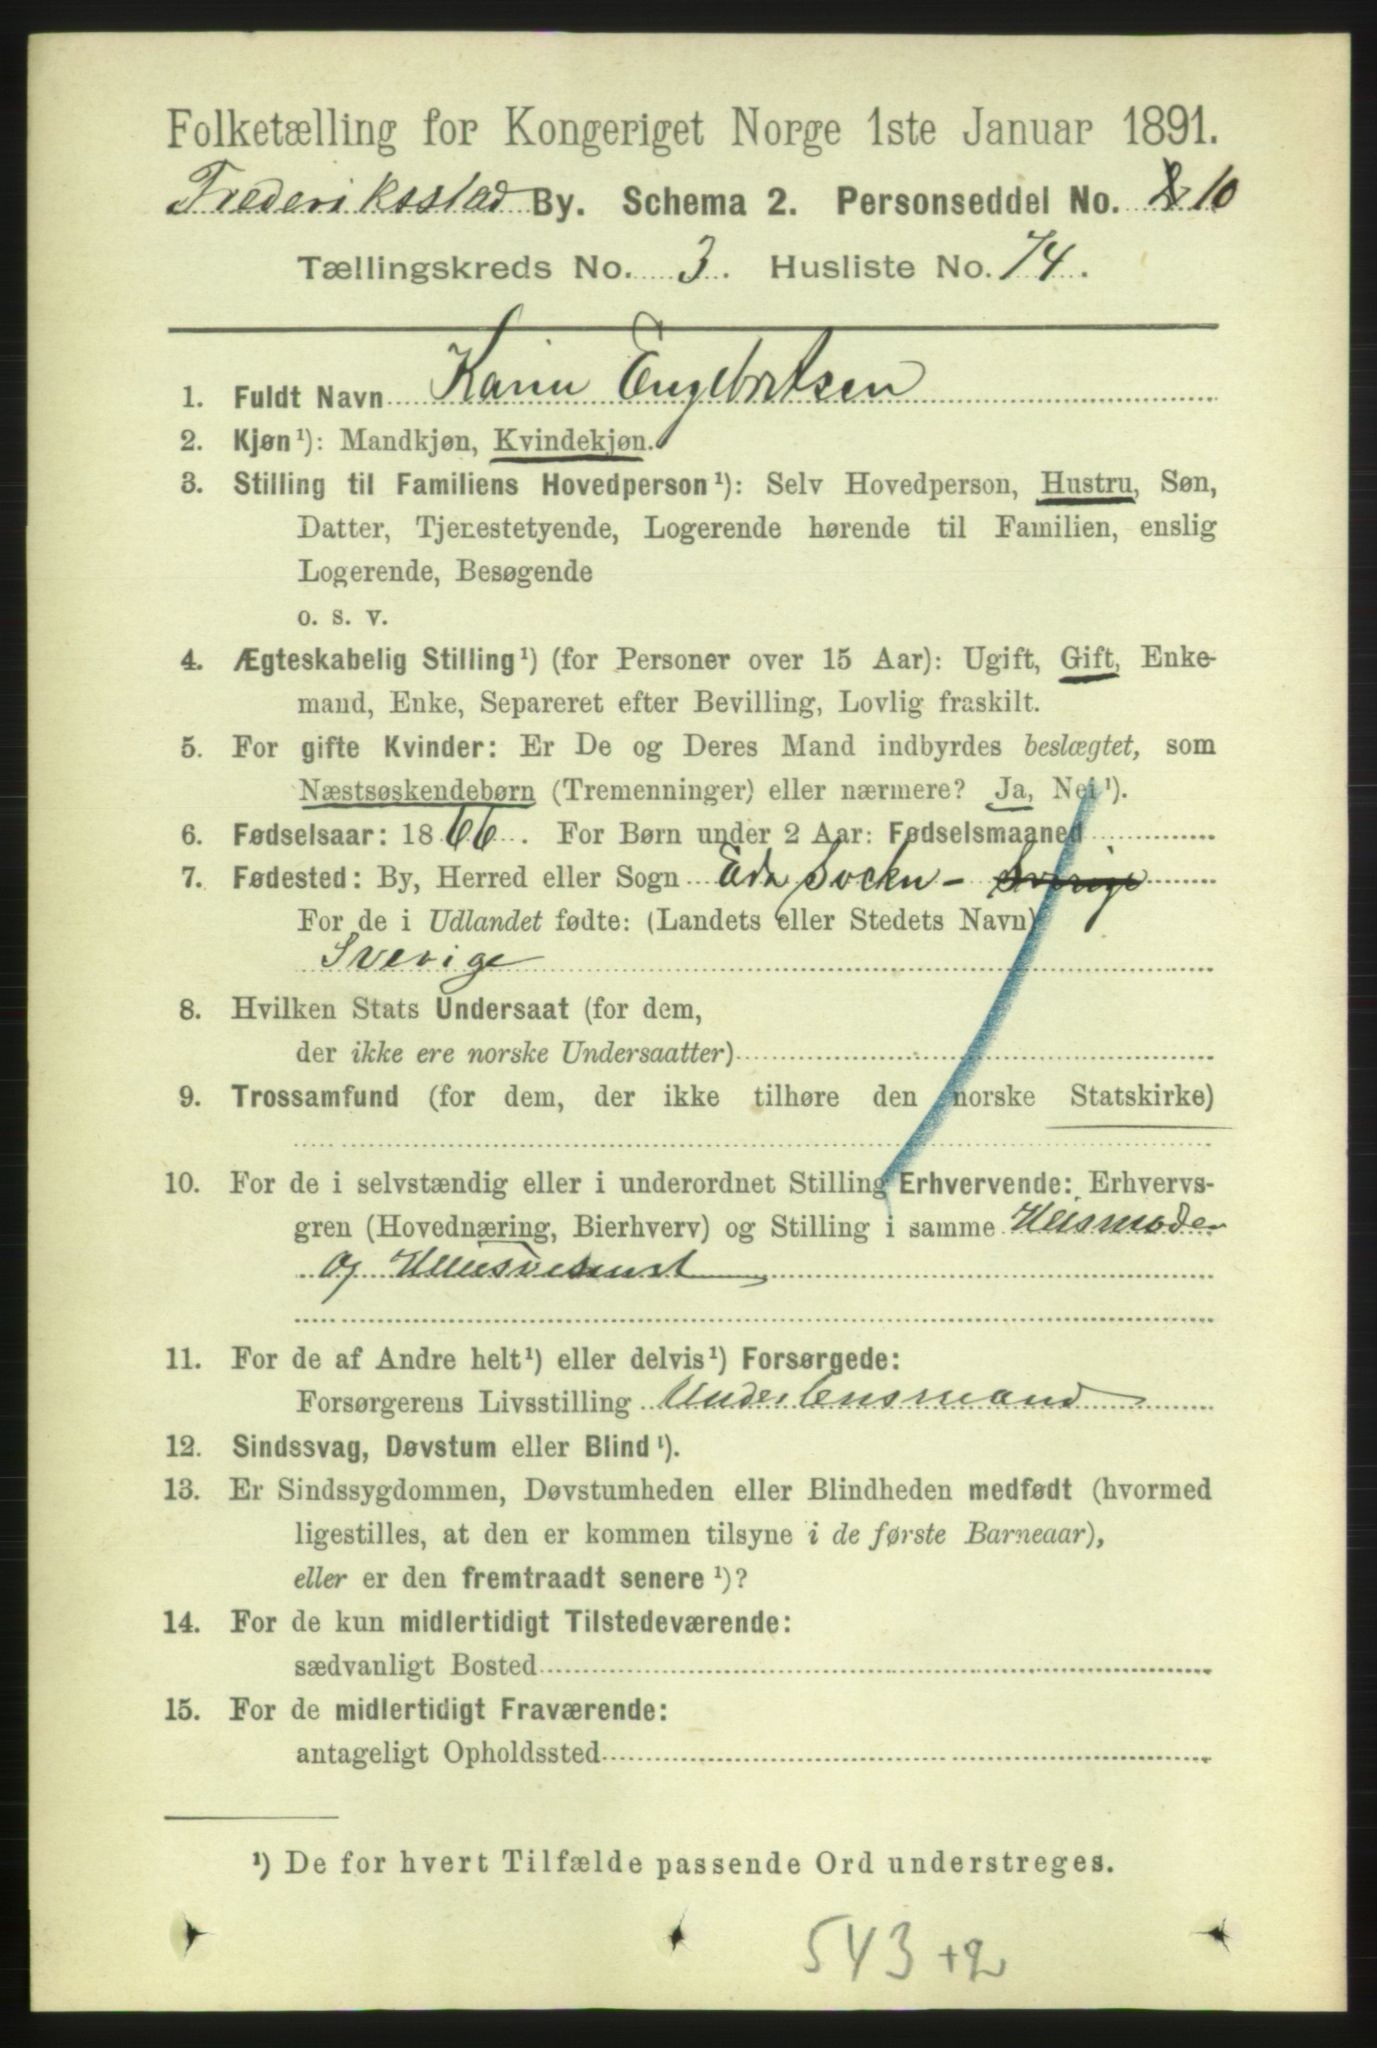 Folketælling for Kongeriget Norge 1ste Januar 1891.
Frederiksstad By. Schema 2. Personseddel No. 2 10
Tællingskreds No. 3. Husliste No. 74.
1. Fuldt Navn Karin Engebretsen
2. Kjøn¹): Mandkjøn, Kvindekjøn.
3. Stilling til Familiens Hovedperson¹): Selv Hovedperson, Hustru, Søn,
Datter, Tjenestetyende, Logerende hørende til Familien, enslig
Logerende, Besøgende
o. s. v.
4. Ægteskabelig Stilling¹) (for Personer over 15 Aar): Ugift, Gift, Enke-
mand, Enke, Separeret efter Bevilling, Lovlig fraskilt.
5. For gifte Kvinder: Er De og Deres Mand indbyrdes beslægtet, som
Næstsøskendebørn (Tremenninger) eller nærmere? Ja, Nei¹).
6. Fødselsaar: 1866. For Børn under 2 Aar: Fødselsmaaned
7. Fødested: By, Herred eller Sogn Eda Sockn - Sverige
For de i Udlandet fødte: (Landets eller Stedets Navn)
Sverige
8. Hvilken Stats Undersaat (for dem,
der ikke ere norske Undersaatter)
9. Trossamfund (for dem, der ikke tilhøre den norske Statskirke)
10. For de i selvstændig eller i underordnet Stilling Erhvervende: Erhvervs-
gren (Hovednæring, Bierhverv) og Stilling i samme Husmoder
og
11. For de af Andre helt¹) eller delvis¹) Forsørgede:
Forsørgerens Livsstilling Underlensmand
12. Sindssvag, Døvstum eller Blind¹).
13. Er Sindssygdommen, Døvstumheden eller Blindheden medfødt (hvormed
ligestilles, at den er kommen tilsyne i de første Barneaar),
eller er den fremtraadt senere¹)?
14. For de kun midlertidigt Tilstedeværende:
sædvanligt Bosted
15. For de midlertidigt Fraværende:
antageligt Opholdssted
¹) De for hvert Tilfælde passende Ord understreges.
543 + 2